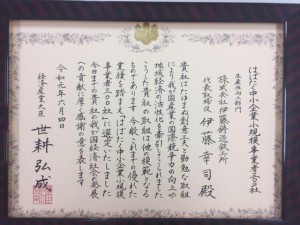 はばたく中小企業・小規模事業者300社
生産性向上部門
株式会社伊藤鋳造鉄工所
代表取締役 伊藤幸司殿
貴社はたゆまぬ創意工夫と勤勉な取組
により我が国産業の国際競争力の向上や
地域経済の活性化を牽引してこられました
こうした貴社の取組は他の模範となる
ものであります 今般これまでの優れた
業績を踏まえ「はばたく中小企業・小規模
事業者300社」に選定いたしました
今日までの貴社の我が国経済社会の発展
への貢献に厚く感謝の意を表します
令和元年六月四日
経済産業大臣 世耕弘成